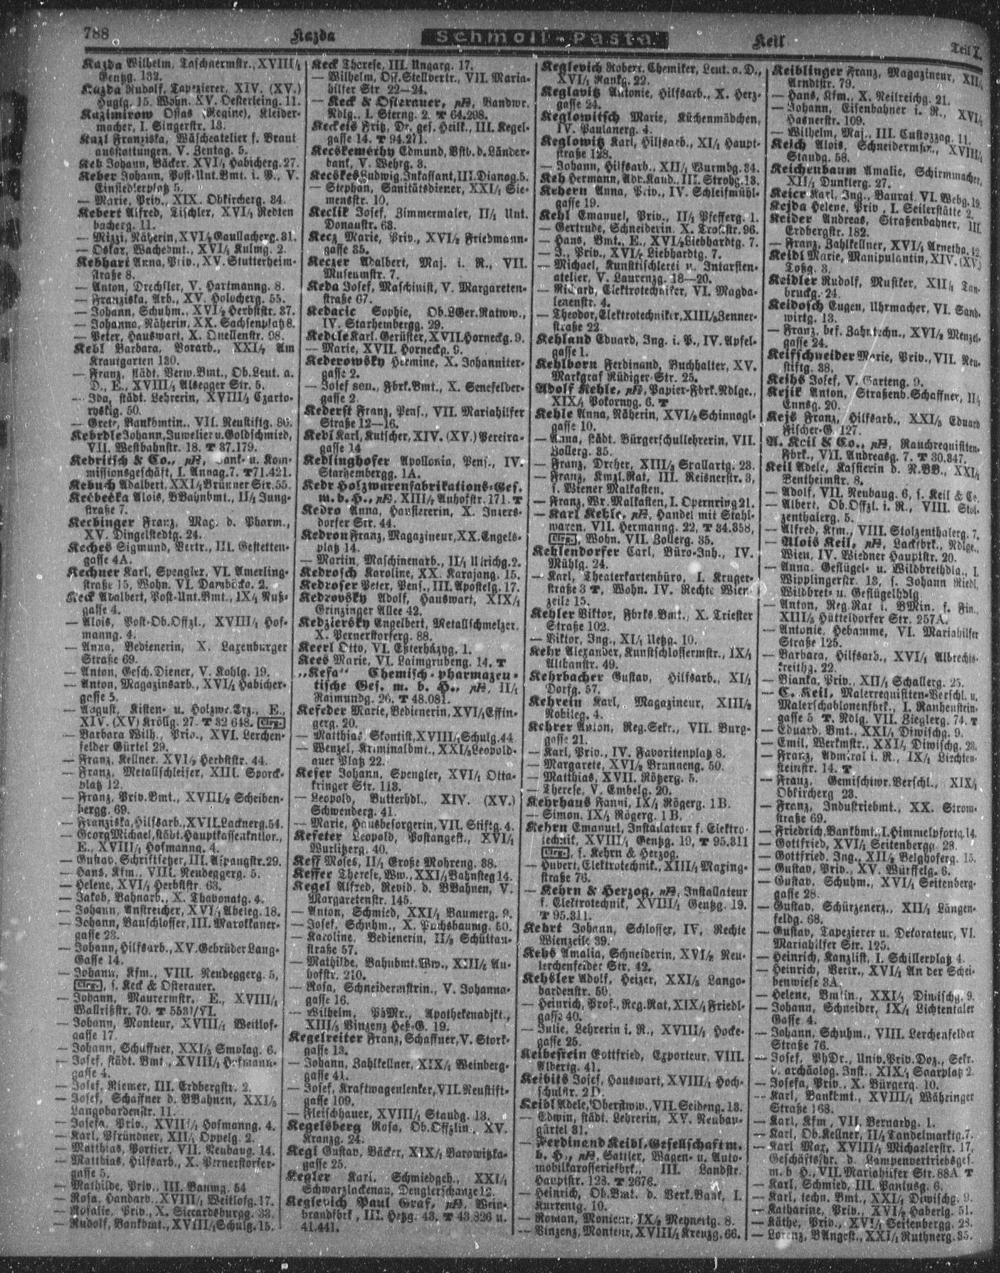 788
Kazda
Schmoll-Pasta
Keil
Teil I.
Kazda Wilhelm, Taschnermstr., XVIII/1
Gentzg. 132.
Kazda Rudolf, Tapezierer, XIV. (XV.)
Huglg. 15. Wohn. XV. Oesterleing. 11.
Kazimirow Ossas (Regine), Kleider-
macher, I. Singerstr. 13.
Kazl Franziska, Wäscheatelier f. Braut
ausstattungen, V. Zentag. 5.
Keb Johann, Bäcker, XVI/1 Habicherg. 27.
Keber Johann, Post-Unt.Bmt. i. P., V.
Einsiedlerplatz 5.
— Marie, Priv., XIX. Obkircherg. 34.
Kebert Alfred, Tischler, XVI/1 Redten
bacherg. 11.
— Mizzi, Näherin, XVI/2 Gaullacherg. 31.
— Oskar, Wachebmt., XVI/1 Kulmg. 2.
Kebhart Anna, Priv., XV. Stutterheim-
straße 8.
— Anton, Drechsler, V. Hartmanng. 8.
— Franziska, Arb., XV. Holocherg. 55.
— Johann, Schuhm., XVI/2 Herbststr. 37.
— Johanna, Näherin, XX. Sachsenplatz 8.
— Peter, Hauswart, X. Quellenstr. 98.
Kebl Barbara, Vorarb., XXI/4 Am
Krautgarten 130.
— Franz, städt. Verw.Bmt., Ob.Leut. a.
D., E., XVIII/1 Alsegger Str. 5.
— Ida, städt. Lehrerin, XVIII/1 Czarto-
ryskig. 50.
— Grete, Bankbmtin., VII. Neustiftg. 86.
Kebrdle Johann, Juwelier u. Goldschmied,
VII. Westbahnstr. 18. T 37.179.
Kebritsch & Co., pH, Bank- u. Kom-
missionsgeschäft, I. Annag. 7. T 71.421.
Kebuch Adalbert, XXI/4 Brünner Str. 55.
Kecbecka Alois, BBahnbmt., II/2 Jung-
straße 7.
Kechinger Franz, Mag. d. Pharm.,
XV. Dingelstedtg. 24.
Keches Sigmund, Vertr., III. Gestetten-
gasse 4A.
Kechner Karl, Spengler, VI. Amerling-
straße 15, Wohn. VI. Damböckg. 2.
Keck Adalbert, Post-Unt.Bmt., IX/4 Nuß-
gasse 4.
— Alois, Post-Ob.Offzl., XVIII/1 Hof-
manng. 4.
— Anna, Bedienerin, X. Laxenburger
Straße 69.
— Anton, Gesch.Diener, V. Kohlg. 19.
— Anton, Magazinsarb., XVI/1 Habicher-
gasse 5.
— August, Kisten- u. Holzwe.Erz., E.,
XIV. (XV) Kröllg. 27. T 32 648. Clrg.
— Barbara Wilh., Priv., XVI. Lerchen-
felder Gürtel 29.
— Franz, Kellner, XVI/2 Herbststr. 44.
— Franz, Metallschleifer, XIII. Sporck-
platz 12.
— Franz, Priv.Bmt., XVIII/2 Scheiben-
bergg. 69.
— Franziska, Hilfsarb., XVII. Lacknerg. 54.
— Georg Michael, städt. Hauptkassekntlor.,
E., XVIII/1 Hofmanng. 4.
— Gustav, Schriftsetzer, III. Aspangstr. 29.
— Hans, Kfm., VIII. Neudeggerg. 5.
— Helene, XVI/1 Herbststr. 63.
— Jakob, Bahnarb., X. Thavonatg. 4.
— Johann, Anstreicher, XVI/1 Abeleg. 18.
— Johann, Bauschlosser, III. Marokkaner-
gasse 23.
— Johann, Hilfsarb., XV. Gebrüder Lang-
Gasse 14.
— Johann, Kfm., VIII. Neudeggerg. 5,
Clrg., s. Keck & Osterauer.
— Johann, Maurermstr., E., XVIII/1
Wallrißstr. 70. T 5531/VI.
— Johann, Monteur, XVIII/1 Weitlof-
gasse 17.
— Johann, Schaffner, XXI/5 Smolag. 6.
— Josef, städt. Bmt., XVIII/1 Hofmann-
gasse 4.
— Josef, Riemer, III. Erdbergstr. 2.
— Josef, Schaffner d. BBahnen, XXI/5
Langobardenstr. 11.
— Josefa, Priv., XVIII/1 Hofmanng. 4.
— Karl, Pfründner, XII/1 Oppelg. 2.
— Matthias, Portier, VII. Neubaug. 14.
— Matthias, Hilfsarb., X. Pernerstorfer-
gasse 5.
— Mathilde, Priv., III. Baumg. 54
— Rosa, Handarb., XVIII/1 Weitlofg. 17.
— Rosalie, Priv., X. Siccardsburgg. 33.
— Rudolf, Bankbmt., XVIII/1 Schulg. 15.
Keck Therese, III. Ungarg. 17.
— Wilhelm, Off.Stellvertr., VII. Maria-
hilfer Str. 22—24.
— Keck & Osterauer, pH, Bandwr.
Ndlg., I. Sterng. 2. T 64.298.
Keckeis Fritz, Dr. ges. Heilk., III. Kegel-
gasse 14. T 94.271.
Kecskemethy Edmund, Bstb. d. Länder-
bank, V. Wehrg. 3.
Kecskes Ludwig, Inkassant, III. Dianag. 5.
— Stephan, Sanitätsdiener, XXI/4 Sie-
mensstr. 10.
Keclik Josef, Zimmermaler, II/1 Unt.
Donaustr. 63.
Kecz Marie, Priv., XVI/2 Friedmann-
gasse 35.
Keczer Adalbert, Maj. i. R., VII.
Museumstr. 7.
Keda Josef, Maschinist, V. Margareten-
straße 67.
Kedacic Sophie, Ob.Ler.Ratsw.,
IV. Starhembergg. 29.
Kedele Karl, Gerüster, XVII. Horneckg. 9.
— Marie, XVII. Horneckg. 9.
Kederowsky Hermine, X. Johanniter-
gasse 2.
— Josef sen., Fbrk.Bmt., X. Senefelder-
gasse 2.
Kederst Franz, Pens., VII. Mariahilfer
Straße 12—16.
Kedl Karl, Kutscher, XIV. (XV.) Pereira-
gasse 14
Kedlinghofer Apollonia, Pens., IV.
Starhembergg. 1A.
Kedr Holzwarenfabrikations-Ges.
m. b. H., pH, XIII/1 Auhofstr. 171. T
Kedro Anna, Hausiererin, X. Inzers-
dorfer Str. 44.
Kedron Franz, Magazineur, XX. Engels-
platz 14.
— Martin, Maschinenarb., II/1 Ulrichg. 2.
Kedrosch Karoline, XX. Karajang. 15.
Kedroser Peter, Pens., III. Apostelg. 17.
Kedrovsky Adolf, Hauswart, XIX/1
Grinzinger Allee 42.
Kedziersky Engelbert, Metallschmelzer,
X. Pernerstorferg. 88.
Keerl Otto, VI. Esterházyg. 1.
Kees Marie, VI. Laimgrubeng. 14. T
„Kefa“ Chemisch-pharmazeu-
tische Ges. m. b. H., pH, II/1
Raimundg. 26, T 48.081.
Kefeder Marie, Bedienerin, XVI/1 Effin-
gerg. 20.
— Matthias, Skontist, XVIII/1 Schulg. 44.
— Wenzel, Kriminalbmt., XXI/4 Leopold-
auer Platz 22.
Kefer Johann, Spengler, XVI/1 Otta-
kringer Str. 113.
— Leopold, Butterhdl., XIV. (XV.)
Schwenderg. 41.
— Marie, Hausbesorgerin, VII. Stiftg. 4.
Kefeter Leopold, Postangest., XVI/1
Wurlitzerg. 40.
Keff Moses, II/1 Große Mohreng. 38.
Keffer Therese, Ww., XXI/1 Bahnsteg 14.
Kegel Alfred, Revid. d. BBahnen, V.
Margaretenstr. 145.
— Anton, Schmied, XXI/1 Baumerg. 9.
— Josef, Schuhm., X. Puchsbaumg. 50.
— Karoline, Bedienerin, II/3 Schüttau-
straße 57.
— Mathilde, Bahnbmt.Ww., XIII/2 Au-
hofstr. 210.
— Rosa, Schneidermstrin., V. Johanna-
gasse 16.
— Wilhelm, PhMr., Apothekenadjkt.,
XIII/1 Vinzenz Heß-G. 19.
Kegelreiter Franz, Schaffner, V. Stork-
gasse 13.
— Johann, Zahlkellner, XIX/1 Weinberg-
gasse 41.
— Josef, Kraftwagenlenker, VII. Neustift-
gasse 109.
— Fleischhauer, XVIII/1 Staudg. 13.
Kegelsberg Rosa, Ob.Offzlin., XV.
Kranzg. 24.
Kegl Gustav, Bäcker, XIX/1 Barawitzka-
gasse 25.
Kegler Karl, Schmiedgeh., XXI/1
Schwarzlackenau, Denglerschanze 12.
Keglevich Paul Graf, pH, Wein-
brandfbrk., III. Hetzg. 43. T 43.826 u.
41.441.
Keglevich Robert, Chemiker, Leut. a. D.,
XVI/1 Rankg. 22.
Keglavitz Antonie, Hilfsarb., X. Herz-
gasse 24.
Keglowitsch Marie, Küchenmädchen,
IV. Paulanerg. 4.
Keglowitz Karl, Hilfsarb., XI/1 Haupt-
straße 128.
— Johann, Hilfsarb., XII/1 Wurmbg. 34.
Keh Hermann, Adv.Kand., III. Strohg. 13.
Kehern Anna, Priv., IV. Schleifmühl-
gasse 19.
Kehl Emanuel, Priv., II/1 Pfefferg. 1.
— Gertrude, Schneiderin, X. Trostr. 96.
— Hans, Bmt., E., XVI/2 Liebhartg. 7.
— J., Priv., XVI/2 Liebhartg. 7.
— Michael, Kunsttischlerei u. Intarsien-
atelier, V. Laurenzg. 18—20.
— Richard, Elektrotechniker, VI. Magda-
lenenstr. 4.
— Theodor, Elektrotechniker, XIII/2 Zenner-
straße 22.
Kehland Eduard, Ing. i. P., IV. Apfel-
gasse 1.
Kehlborn Ferdinand, Buchhalter, XV.
Markgraf Rüdiger-Str. 25.
Adolf Kehle, pH, Papier-Fbrk.Ndlge.,
XIX/4 Pokornyg. 6. T
Kehle Anna, Näherin, XVI/2 Schinnagl-
gasse 10.
— Anna, städt. Bürgerschullehrerin, VII.
Zollerg. 35.
— Franz, Dreher, XIII/3 Grallartg. 23.
— Franz, Kmzl.Rat, III. Reisnerstr. 3,
s. Wiener Malkasten.
— Franz, Wr. Malkasten, I. Opernring 21.
— Karl Kehle, pH, Handel mit Stahl-
waren, VII. Hermanng. 22, T 34.358,
Clrg., Wohn. VII. Zollerg. 35.
Kehlendorfer Carl, Büro-Inh., IV.
Mühlg. 24.
— Karl, Theaterkartenbüro, I. Kruger-
straße 3 T, Wohn. IV. Rechte Wien
zeile 15.
Kehler Viktor, Fbrks.Bmt., X. Triester
Straße 102.
— Viktor, Ing., XI/1 Uetzg. 10.
Kehr Alexander, Kunstschlossermstr., IX/4
Althanstr. 49.
Kehrbacher Gustav, Hilfsarb., XI/1
Dorfg. 57.
Kehrein Karl, Magazineur, XIII/3
Nobileg. 4.
Kehrer Anton, Reg.Sekr., VII. Burg-
gasse 21.
— Karl, Priv., IV. Favoritenplatz 8.
— Margarete, XVI/2 Brunneng. 50.
— Matthias, XVII. Rötzerg. 5.
— Therese, V. Embelg. 20.
Kehrhaus Fanni, IX/1 Rögerg. 1B.
— Simon, IX/1 Rögerg. 1B.
Kehrn Emanuel, Installateur f. Elektro-
technik, XVIII/1 Gentzg. 19, T 95.311
Clrg., s. Kehrn & Herzog.
— Hubert, Elektrotechnik., XIII/1 Maxing-
straße 76.
— Kehrn & Herzog, pH, Installateur
f. Elektrotechnik, XVIII/1 Gentzg. 19.
T 95.311.
Kehrt Johann, Schlosser, IV. Rechte
Wienzeile 39.
Kehs Amalia, Schneiderin, XVI/2 Neu-
lerchenfelder Str. 42.
Kehsler Adolf, Heizer, XXI/5 Lango-
bardenstr. 59.
— Heinrich, Prof., Reg.Rat, XIX/4 Friedl-
gasse 40.
— Julie, Lehrerin i. R., XVIII/1 Hocke-
gasse 25.
Keibefrein Gottfried, Exporteur, VIII.
Albertg. 41.
Keibits Josef, Hauswart, XVIII/1 Hoch-
schulstr. 2D.
Keibl Adele, Oberstww., VII. Seideng. 13.
— Edwin, städt. Lehrerin, XV. Neubau-
gürtel 31.
— Ferdinand Keibl, Gesellschaft m.
b. H., pH, Sattler, Wagen- u. Auto-
mobilkarosseriefbrk., III. Landstr.
Hauptstr. 128. T 2676.
— Heinrich, Ob.Bmt. d. Verk.Bank, I.
Kurrentg. 10.
— Roman, Monteur, IX/2 Meynertg. 8.
— Vinzenz, Monteur, XVIII/1 Kreuzg. 66.
Keiblinger Franz, Magazineur, XII/
Arndtstr. 79.
— Hans, Kfm., X. Neilreichg. 21.
— Johann, Eisenbahner i. R., XVI/1
Hasnerstr. 109.
— Wilhelm, Maj., III. Custozzag. 11.
Keich Alois, Schneidermstr., XVIII/1
Staudg. 58.
Keichenbaum Amalie, Schirmmacher,
XII/1 Dunklerg. 27.
Keier Karl, Ing., Baurat, VI. Webg. 19.
Kejda Helene, Priv., I. Seilerstätte 2.
Keider Andreas, Straßenbahner, III.
Erdbergstr. 182.
— Franz, Zahlkellner, XVI/1 Arnethg. 12.
Keidl Marie, Manipulantin, XIV. (XV)
Toßg. 3.
Keidler Rudolf, Musiker, XII/1 Tan-
bruckg. 24.
Keidosch Eugen, Uhrmacher, VI. Sand-
wirtg. 13.
— Franz, bef. Zahntechn., XVI/1 Menzel-
gasse 24.
Keifschneider Marie, Priv., VII. Neu-
stiftg. 38.
Keihs Josef, V. Garteng. 9.
Keik Anton, Straßenb.Schaffner, II/
Ennsg. 20.
Kejk Franz, Hilfsarb., XXI/5 Eduard
Fitscher-G. 127.
A. Keil & Co., pH, Rauchrequisiten-
Fbrk., VII. Andreasg. 7. T 30.847.
Keil Adele, Kassierin d. N.BB., XXI/
Bentheimstr. 8.
— Adolf, VII. Neubaug. 6, s. Keil & Co.
— Albert, Ob.Offzl. i. R., VIII. Stol-
zenthalerg. 5.
— Alfred, Kfm., VIII. Stolzenthalerg. 7.
— Alois Keil, pH, Lackfbrk., Ndlge.,
Wien, IV. Wiedner Hauptstr. 20.
— Anna, Geflügel- u. Wildbrethdla., I.
Wipplingerstr. 13, s. Johann Riedl,
Wildbret- u. Geflügelhdlg
— Anton, Reg.Rat i. BMin. f. Fin.,
XIII/3 Hütteldorfer Str. 257A.
— Antonie, Hebamme, VI. Mariahilfer
Straße 125.
— Barbara, Hilfsarb., XVI/1 Albrechts-
kreithg. 22.
— Bianka, Priv., XII/2 Schallerg. 25.
— C. Keil, Malerrequisiten-Verschl. u.
Malerschablonenfbrk., I. Rauhenstein-
gasse 5 T, Ndlg. VII. Zieglerg. 74. T
— Eduard, Bmt., XXI/1 Diwischg. 9.
— Emil, Werkmstr., XXI/1 Diwischg. 28.
— Franz, Admiral i. R., IX/1 Liechten-
steinstr. 14. T
— Franz, Gemischtwr.Verschl., XIX/1
Obkircherg. 23.
— Franz, Industriebmt., XX. Strom-
straße 69.
— Friedrich, Bankbmt., I. Himmelpfortg. 14.
— Gottfried, XVI/1 Seitenbergg. 28.
— Gottfried, Ing., XII/2 Belghoferg. 15.
— Gustav, Priv., XV. Würffelg. 6.
— Gustav, Schuhm., XVI/1 Seitenberg-
gasse 28.
— Gustav, Schürzenerz., XII/1 Längen-
feldg. 68.
— Gustav, Tapezierer u. Dekorateur, VI.
Mariahilfer Str. 125.
— Heinrich, Kanzlist, I. Schillerplatz 4.
— Heinrich, Vertr., XVI/1 An der Schei-
benwiese 3A.
— Helene, Bmtin., XXI/1 Diwischg. 9.
— Johann, Schneider, IX/1 Lichtentaler
Gasse 4.
— Johann, Schuhm., VIII. Lerchenfelder
Straße 76.
— Josef, PhDr., Univ.Priv.Doz., Sekr.
d. archäolog. Inst., XIX/1 Saarplatz 2.
— Josefa, Priv., X. Bürgerg. 10.
— Karl, Bankbmt., XVIII/1 Währinger
Straße 168.
— Karl, Kfm., VII. Bernardg. 1.
— Karl, Ob.Kellner, II/1 Tandelmarktg. 7.
— Karl Max, XVIII/1 Michaelerstr. 17,
Geschäftsfhr. d. Lampenvertriebsges.
m. b H., VII. Mariahilfer Str. 88A T
— Karl, Schmied, III. Paulusg. 6.
— Karl, techn. Bmt., XXI/1 Diwischg. 9.
— Katharine, Priv., XVI/2 Haberlg. 51.
— Käthe, Priv., XVI/1 Seitenbergg. 28.
— Lorenz, BAngest., XXI/1 Ruthnerg. 35.